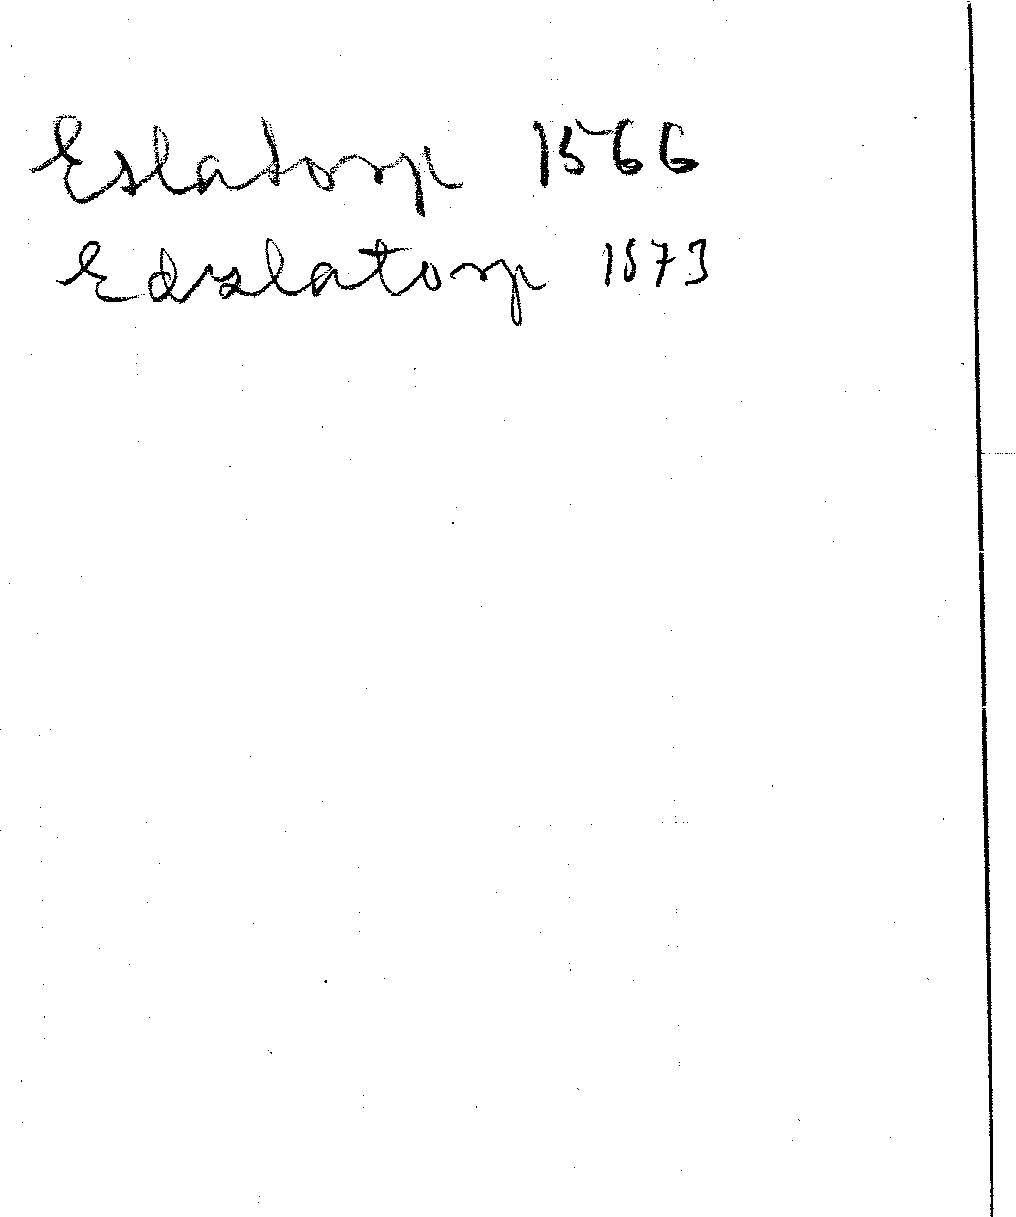 Eslatorp 1566
Edzlatorp 1573